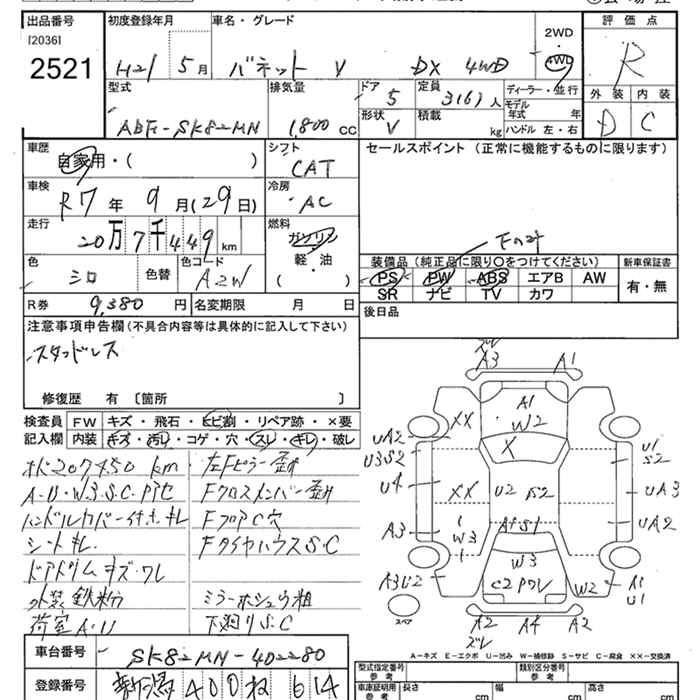 出品番号
[2036]
2521
初度登録年月 車名・グレード
H21 5月 バネット V DX 4WD
2WD
・
4WD
評価点
R
型式
ABF-SK82MN
排気量
1,800 cc
ドア 5
定員 3(6)人
ディーラー・並行
モデル年式 年
ハンドル 左・右
形状 V
積載 kg
外装 内装
D C
車歴
自家用・( )
シフト
CAT
車検
R7年 9月(29日)
冷房
AC
走行
20万7千449km
燃料
ガソリン
軽・油
( )
色
シロ
色替
色コード
A2W
R券 9,380円
名変期限 月 日
セールスポイント(正常に機能するものに限ります)
装備品(純正品に限り○をつけてください)
新車保証書
PS PW ABS エアB AW
SR ナビ TV カワ
有・無
後日品
注意事項申告欄(不具合内容等は具体的に記入して下さい)
スタッドレス
修復歴 有〔箇所 〕
検査員記入欄
FW キズ・飛石・ヒビ割・リペア跡・×要
内装 キズ・汚レ・コゲ・穴・スレ・キレ・破レ
207450km
左Fピラー歪
A・U・W3・S・C・Pアセ
Fクロスメンバー歪
ハンドルカバー付
FフロアC穴
シートキレ
FタイヤハウスS・C
外装鉄粉
ミラーホシュウ粗
荷室A・U
下廻りS・C
車台番号
SK82MN-402280
登録番号
新潟 400 ね 614
ズレ
A3 A1
XX A1
W2
X
UA2
U3S2
U4
A3
A3U2
XX
W3
U2 S2
A4S1
W3
C2 Pワレ
U1
S2
UA3
UA2
W2 A1
U1
A2 A4 A2
ズレ
スペア
A-キズ E-エクボ U-凹み W-補修跡 S-サビ C-腐食 XX-交換済
型式指定番号
参考
類別区分番号
参考
車庫証明用
参考
長さ cm
幅 cm
高さ cm